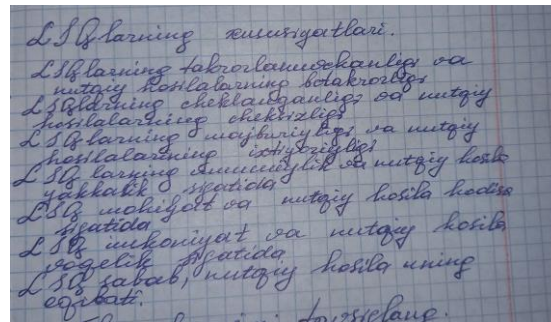 LSQlarning xususiyatlari.
LSQlarning takrorlanuvchanligi va
nutqiy hosilalarning betakrorligi
LSQlarning cheklanganligi va nutqiy
hosilalarning cheksizligi
LSQlarning majburiyligi va nutqiy
hosilalarning ixtiyoriyligi
LSQ larning umumiylik va nutqiy hosila
yakkalik sifatida
LSQ mohiyat va nutqiy hosila hodisa
sifatida
LSQ imkoniyat va nutqiy hosila
voqelik sifatida
LSQ sabab, nutqiy hosila uning
oqibati.